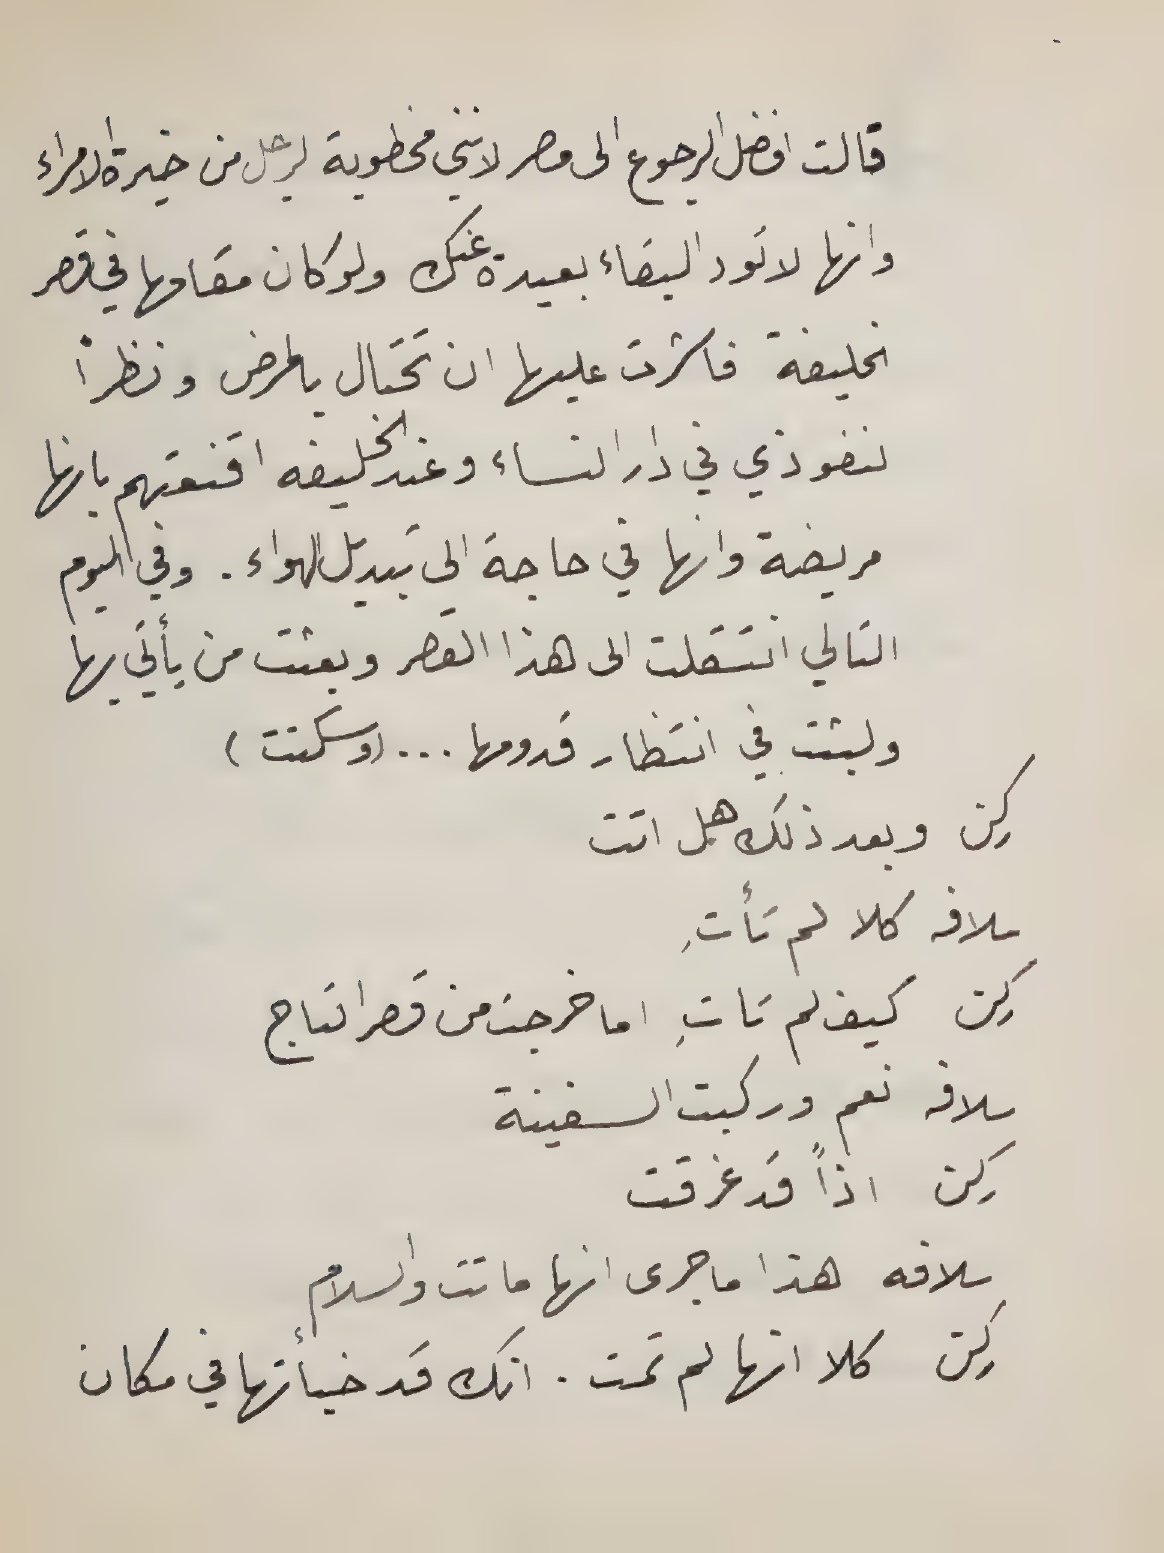 قالت افضل الرجوع الى مصر لانني مخطوبة لرجل من خيرة الامراء
وانها لا تود البقاء بعيدة عنك ولو كان مقامها في قصر
الخليفة فاشرت عليها ان تحتال بالمرض ونظراً
لنفوذي في دار النساء وعند الخليفه اقنعتهم بانها
مريضة وانها في حاجة الى تبديل الهواء . وفي اليوم
التالي انتقلت الى هذا القصر وبعثت من يأتي بها
ولبثت في انتظار قدومها ... (وسكتت)
ركن وبعد ذلك هل اتت
سلافه كلا لم تأتِ
ركن كيف لم تاتِ اما خرجت من قصر التاج
سلافه نعم وركبت السفينة
ركن اذاً قد غرقت
سلافه هذا ما جرى انها ماتت والسلام
ركن كلا انها لم تمت . انك قد خبأتها في مكان